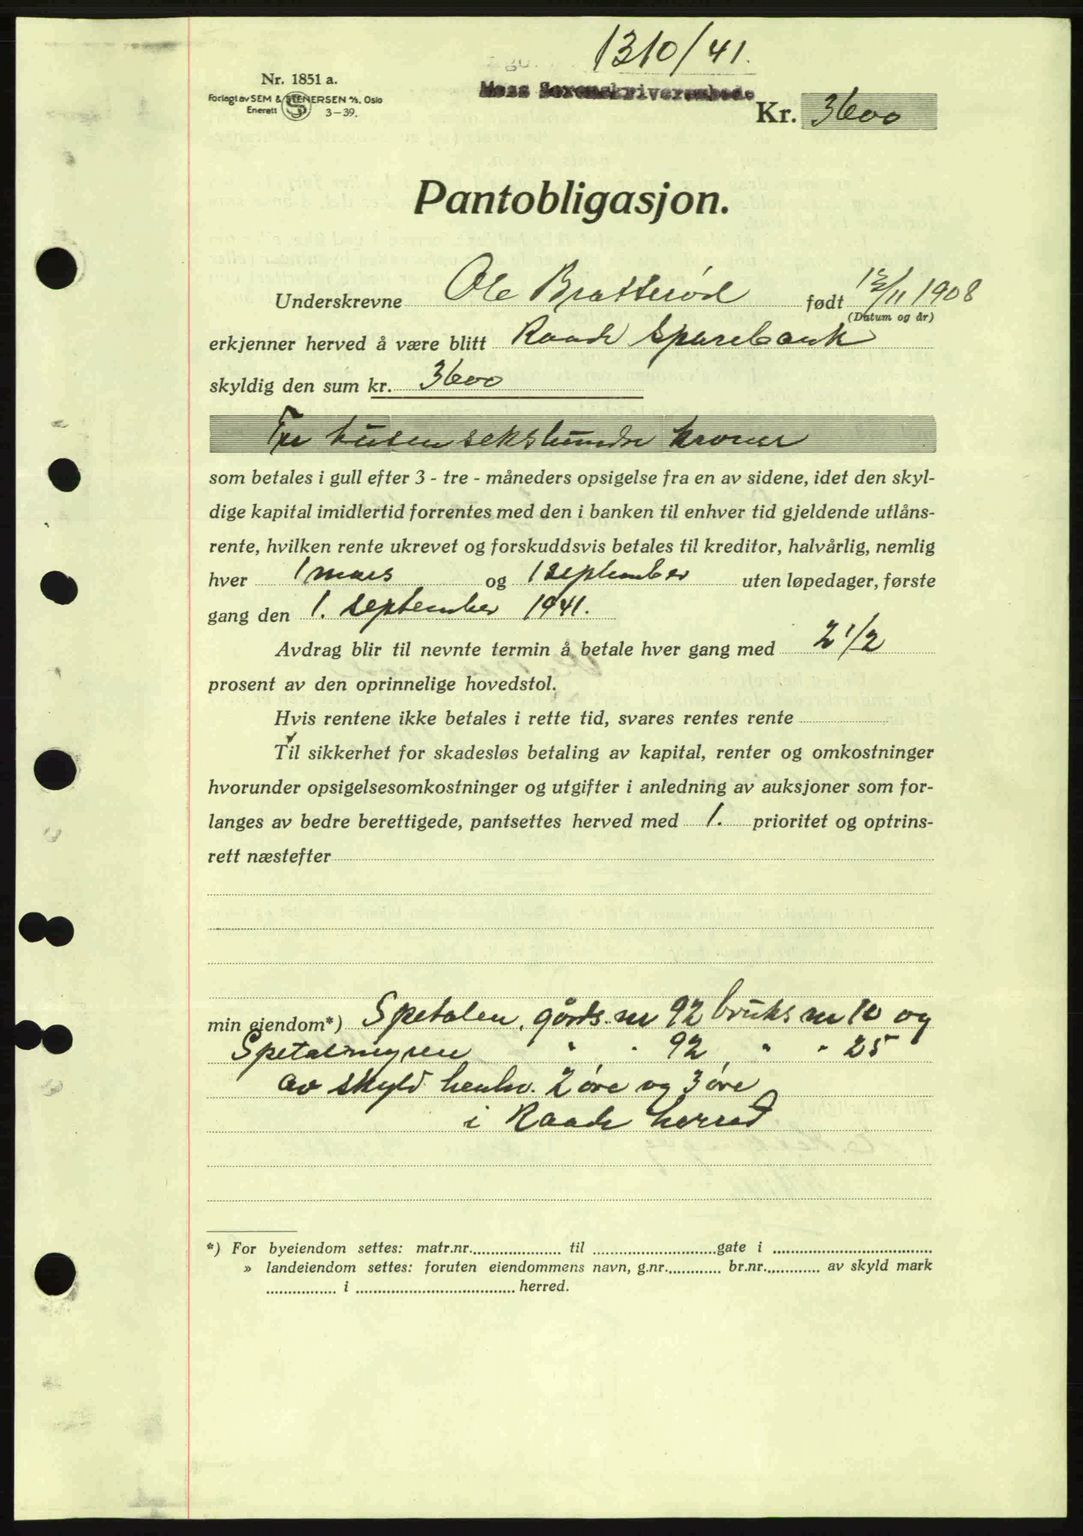 1310/41.
Moss Sorenskriverembede
Nr. 1851 a.
Forlagt av SEM & STENERSEN A/S, Oslo
Enerett 3-39.
Kr. 3600
Pantobligasjon.
Underskrevne Ole Bratterød født 12/11 1908
(Datum og år)
erkjenner herved å være blitt Raade Sparebank
skyldig den sum kr. 3600
Tre tusen sekshundre kroner
som betales i gull efter 3 - tre - måneders opsigelse fra en av sidene, idet den skyl-
dige kapital imidlertid forrentes med den i banken til enhver tid gjeldende utlåns-
rente, hvilken rente ukrevet og forskuddsvis betales til kreditor, halvårlig, nemlig
hver 1 mars og 1 september uten løpedager, første
gang den 1. september 1941.
Avdrag blir til nevnte termin å betale hver gang med 2 1/2
prosent av den oprinnelige hovedstol.
Hvis rentene ikke betales i rette tid, svares rentes rente
Til sikkerhet for skadesløs betaling av kapital, renter og omkostninger
hvorunder opsigelsesomkostninger og utgifter i anledning av auksjoner som for-
langes av bedre berettigede, pantsettes herved med 1. prioritet og optrins-
rett næstefter
min eiendom*) Spetalen, gårds nr 92 bruks nr 10 og
Spetalmyren " " 92 " " 25
av skyld henhv. 2 øre og 3 øre
i Raade herred
*) For byeiendom settes: matr.nr. til gate i
» landeiendom settes: foruten eiendommens navn, g.nr. br.nr. av skyld mark
i herred.